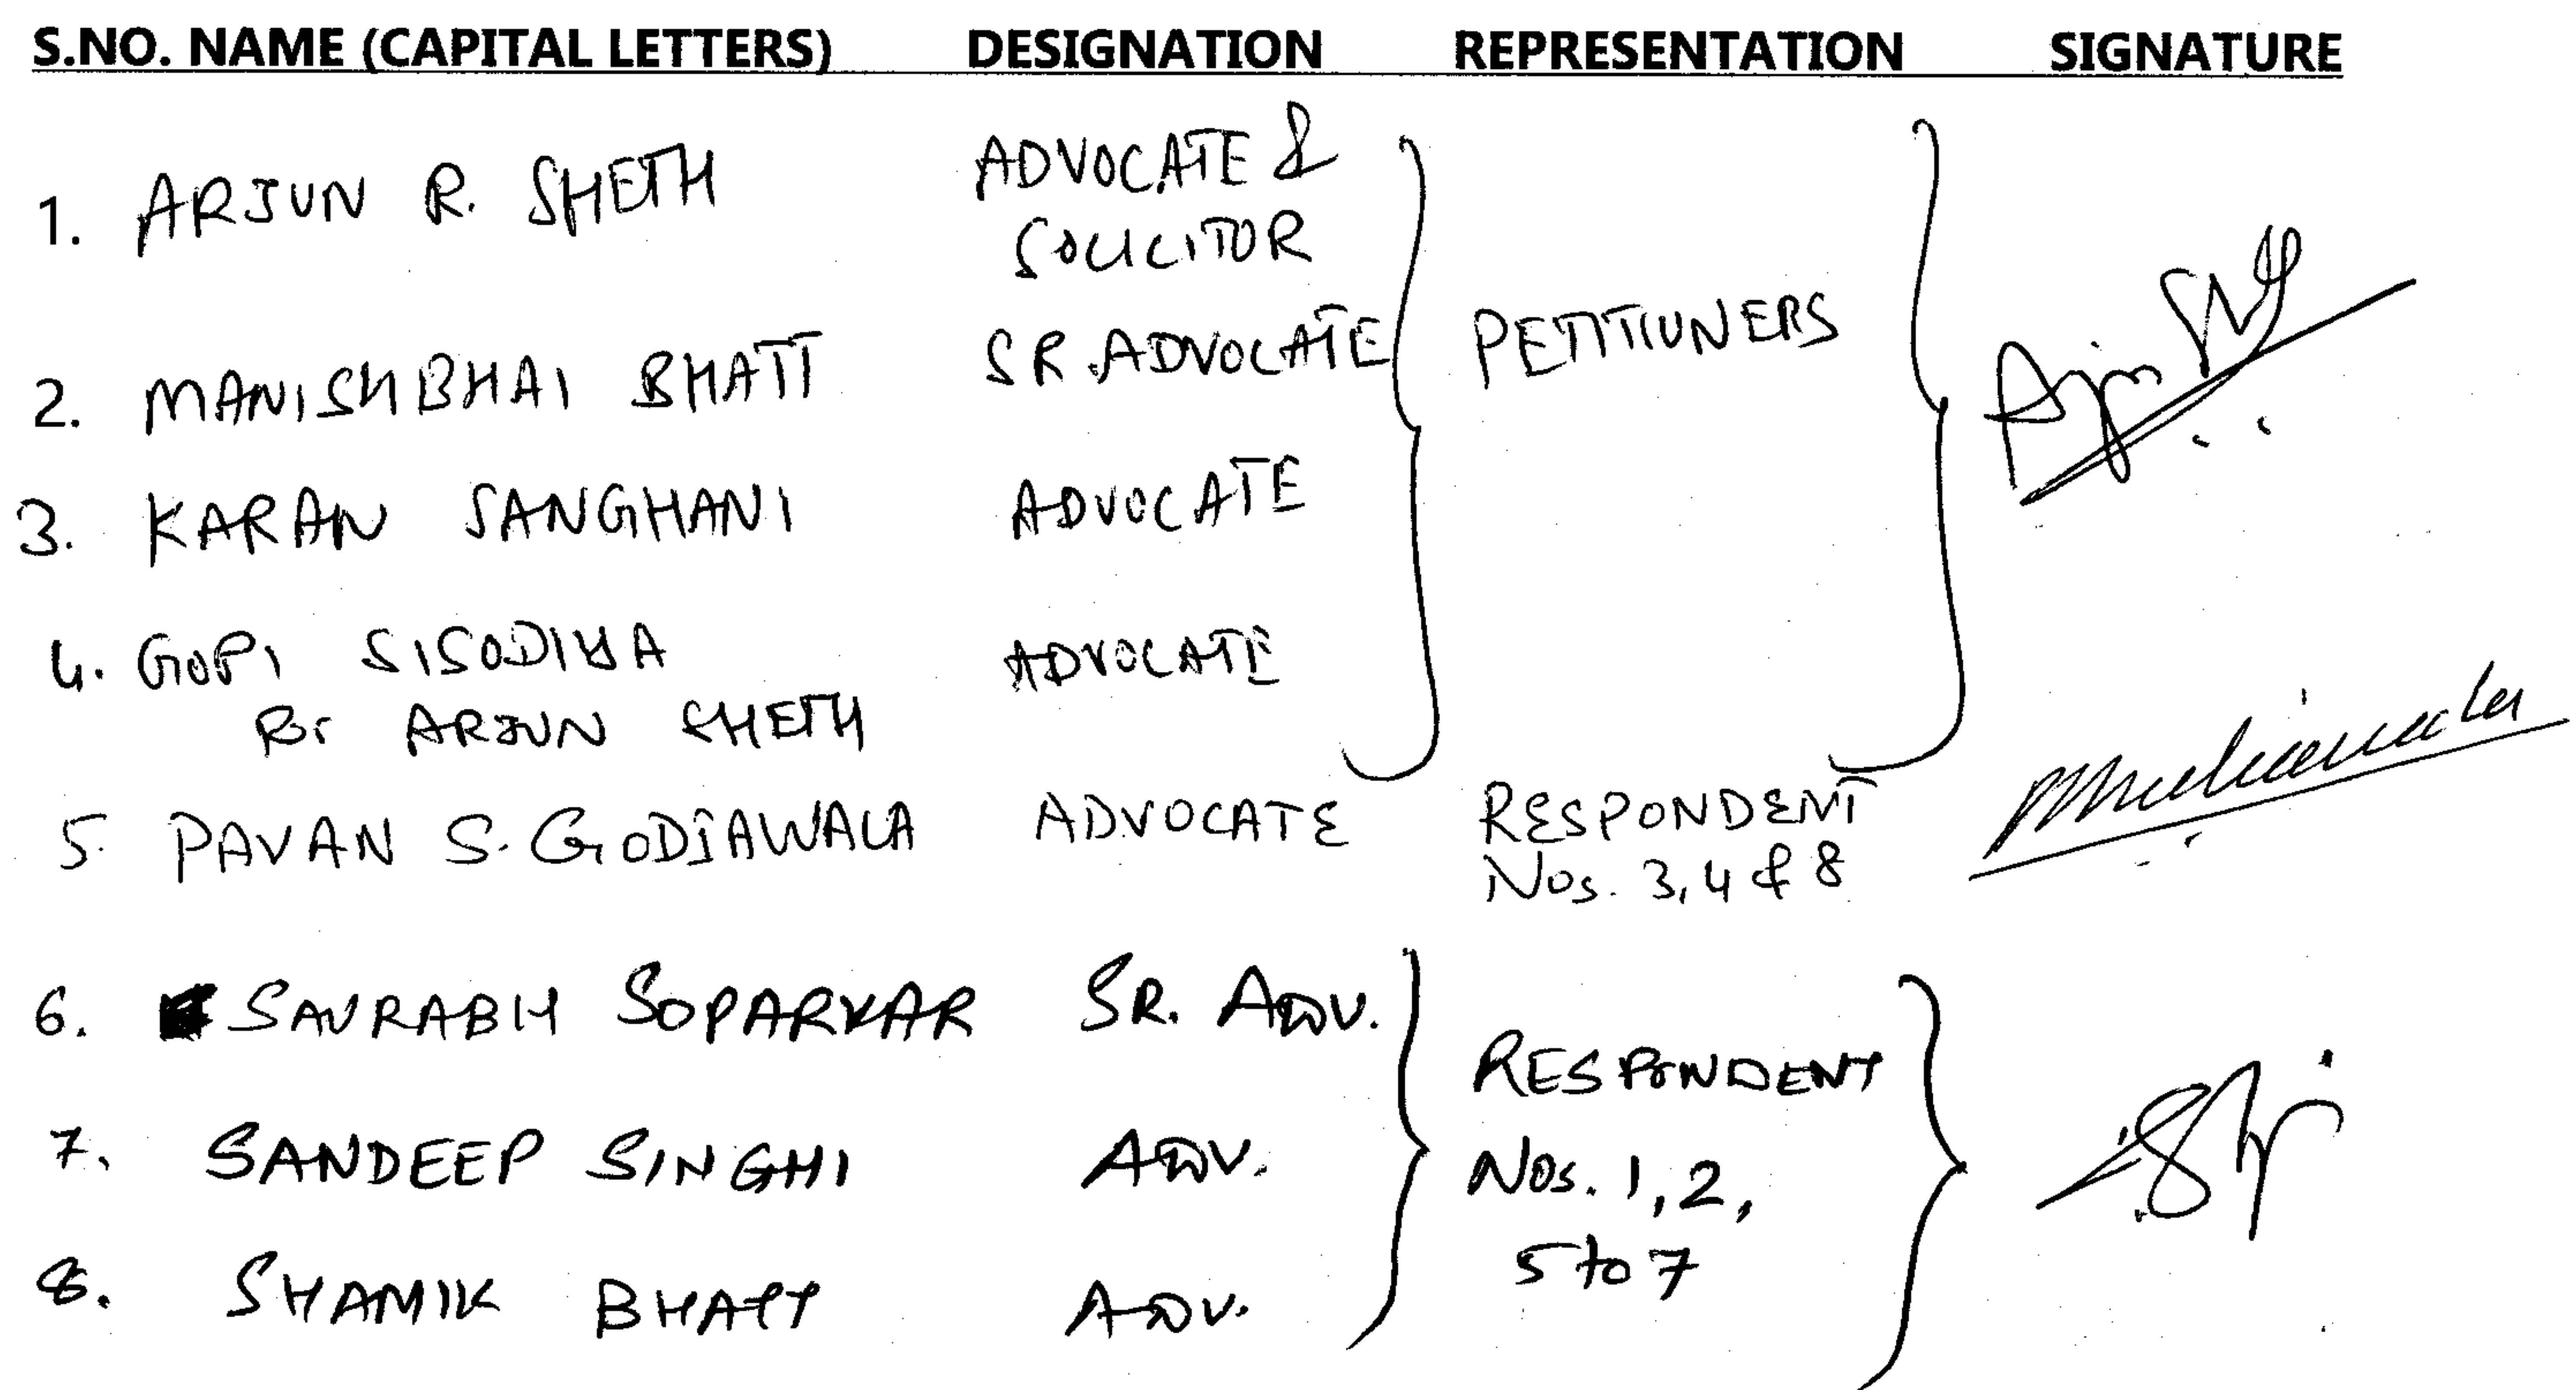 S.NO. NAME (CAPITAL LETTERS) DESIGNATION REPRESENTATION SIGNATURE
1. ARJUN R. SHETH ADVOCATE &
SOLICITOR
2. MANISHBHAI BHATT SR. ADVOCATE PETITIONERS
3. KARAN SANGHANI ADVOCATE
4. GOPI SISODIYA ADVOCATE
ARJUN SHETH
5. PAVAN S. GODIAWALA ADVOCATE RESPONDENT
Nos. 3, 4 & 8
6. SAURABH SOPARKAR SR. ADV.
RESPONDENT
7. SANDEEP SINGHI ADV. Nos. 1, 2,
5 to 7
8. SHAMIK BHATT ADV.